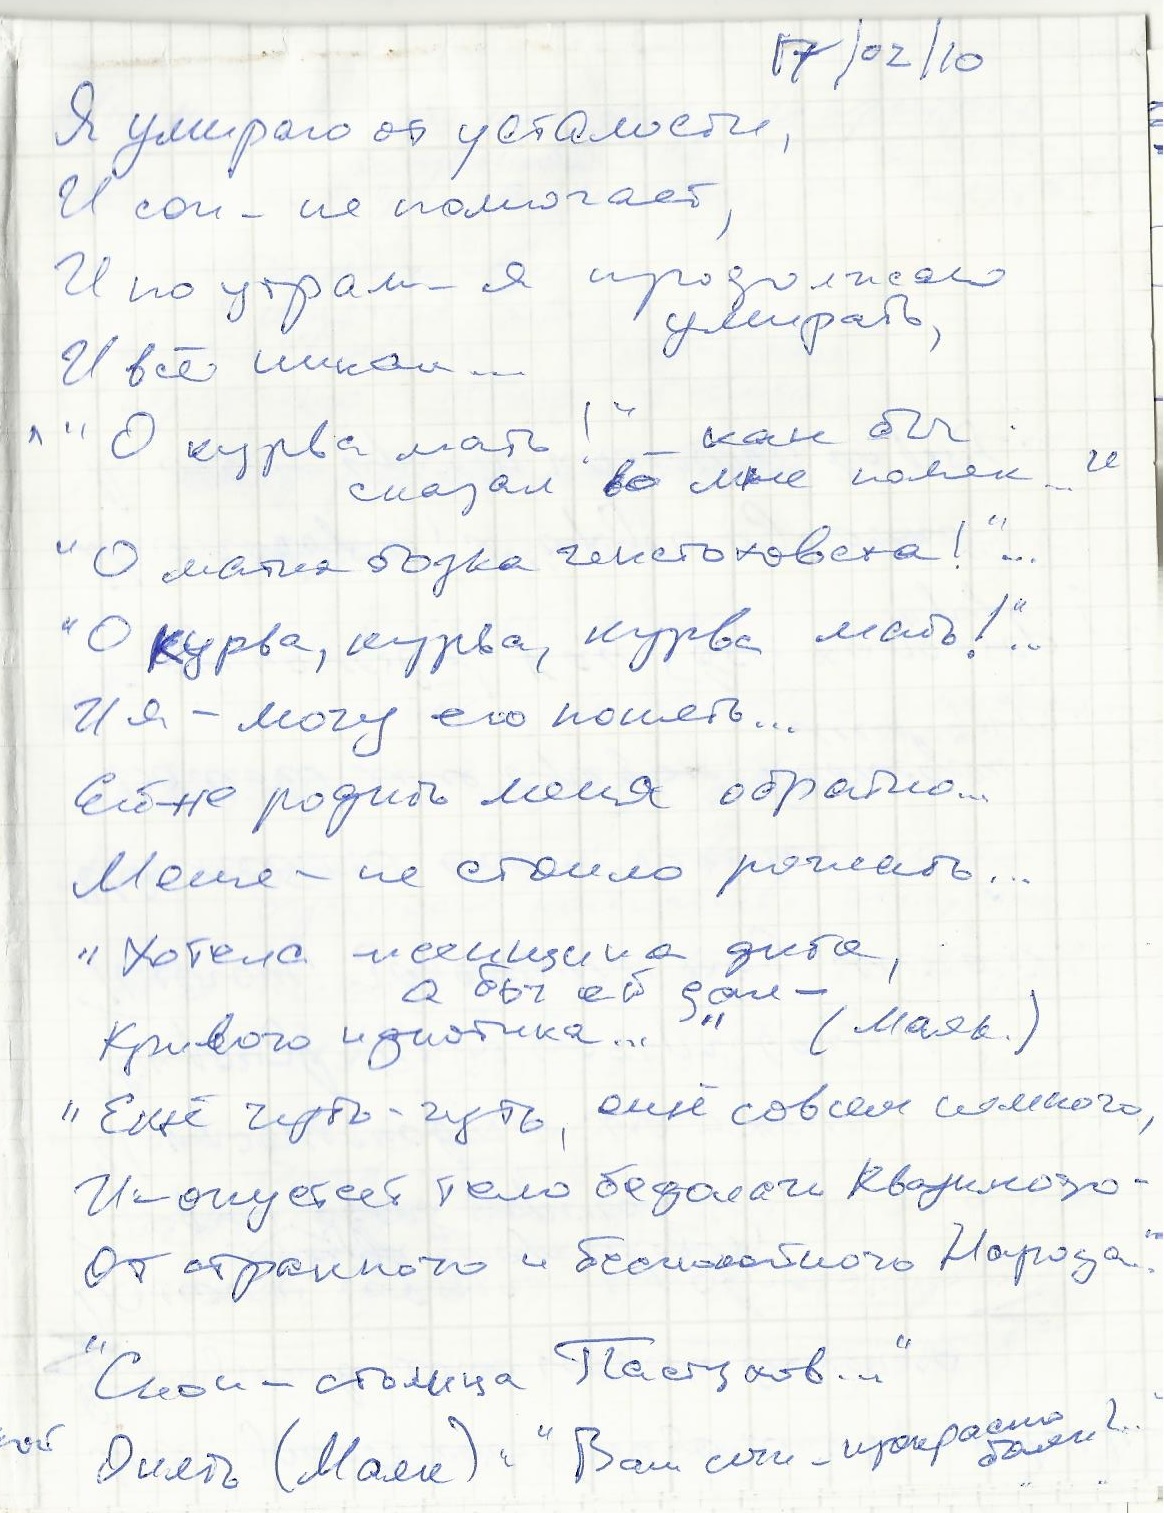 17/02/10
Я умираю от усталости,
И сон - не помогает,
И по утрам - я продолжаю
умирать,
И всё никак...
" О курва мать!" - как бы
сказал во мне поляк... и
" О матка бозка ченстоховска!"...
" О курва, курва, курва мать!"...
И я - могу его понять...
родить меня обратно...
Меня - не стоило рожать...
" Хотела женщина дитя,
а бог ей дал -
Кривого идиотика..." (Маяк.)
" Ещё чуть-чуть, ещё совсем немного,
И - опустеет тело бедолаги Квазимодо -
От странного и Народа..."
" Скон - столица Пастухов..."
Опять (Маяк) : " Ваш сын - прекрасно
болен!..